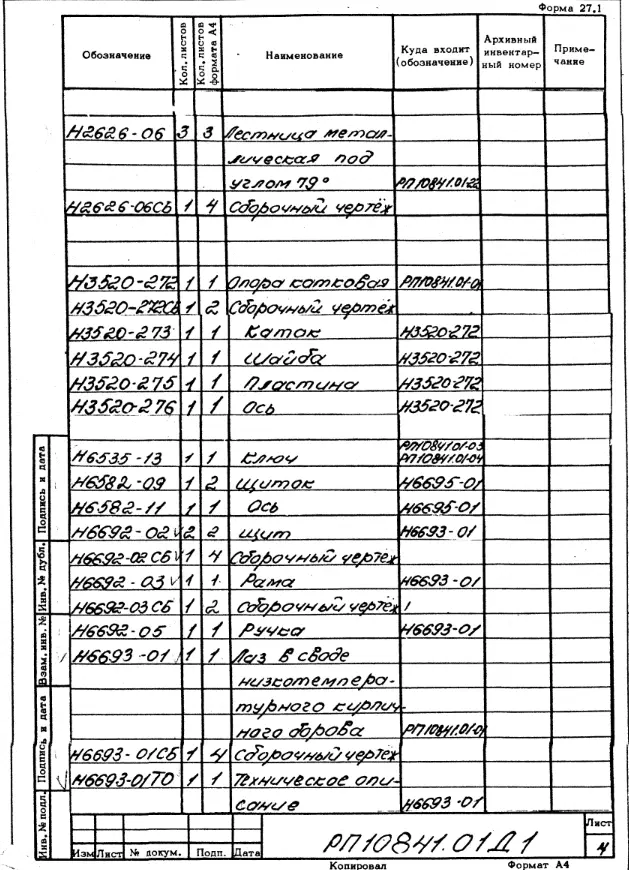 Форма 27.1
Обозначение Кол. листов Кол. листов формата А4 Наименование Куда входит (обозначение) Архивный инвентар- ный номер Приме- чание
Н2626-06 3 3 Лестница метал-
лическая под
углом 79° РП10841.01-22
Н2626-06СБ 1 4 Сборочный чертёж
Н3520-272 1 1 Опора катковая РП10841.01-01
Н3520-272СБ 1 2 Сборочный чертёж
Н3520-273 1 1 Каток Н3520-272
Н3520-274 1 1 Шайба Н3520-272
Н3520-275 1 1 Пластина Н3520-272
Н3520-276 1 1 Ось Н3520-272
РП10841.01-03
Н6535-13 1 1 Ключ РП10841.01-04
Н6582-09 1 2 Щиток Н6695-01
Н6582-11 1 1 Ось Н6695-01
Н6692-02 2 2 Щит Н6693-01
Н6692-02СБ 1 4 Сборочный чертёж
Н6692-03 1 1 Рама Н6693-01
Н6692-03СБ 1 2 Сборочный чертёж
Н6692-05 1 1 Ручка Н6693-01
Н6693-01 1 1 Лаз в своде
низкотемпера-
турного кирпич-
ного борова РП10841.01-01
Н6693-01СБ 1 4 Сборочный чертёж
Н6693-01ТО 1 1 Техническое опи-
сание Н6693-01
Инв. № подл. Подпись и дата Взам. инв. № Инв. № дубл. Подпись и дата
Изм Лист № докум. Подп. Дата
РП10841.01Д1
Лист
4
Копировал Формат А4